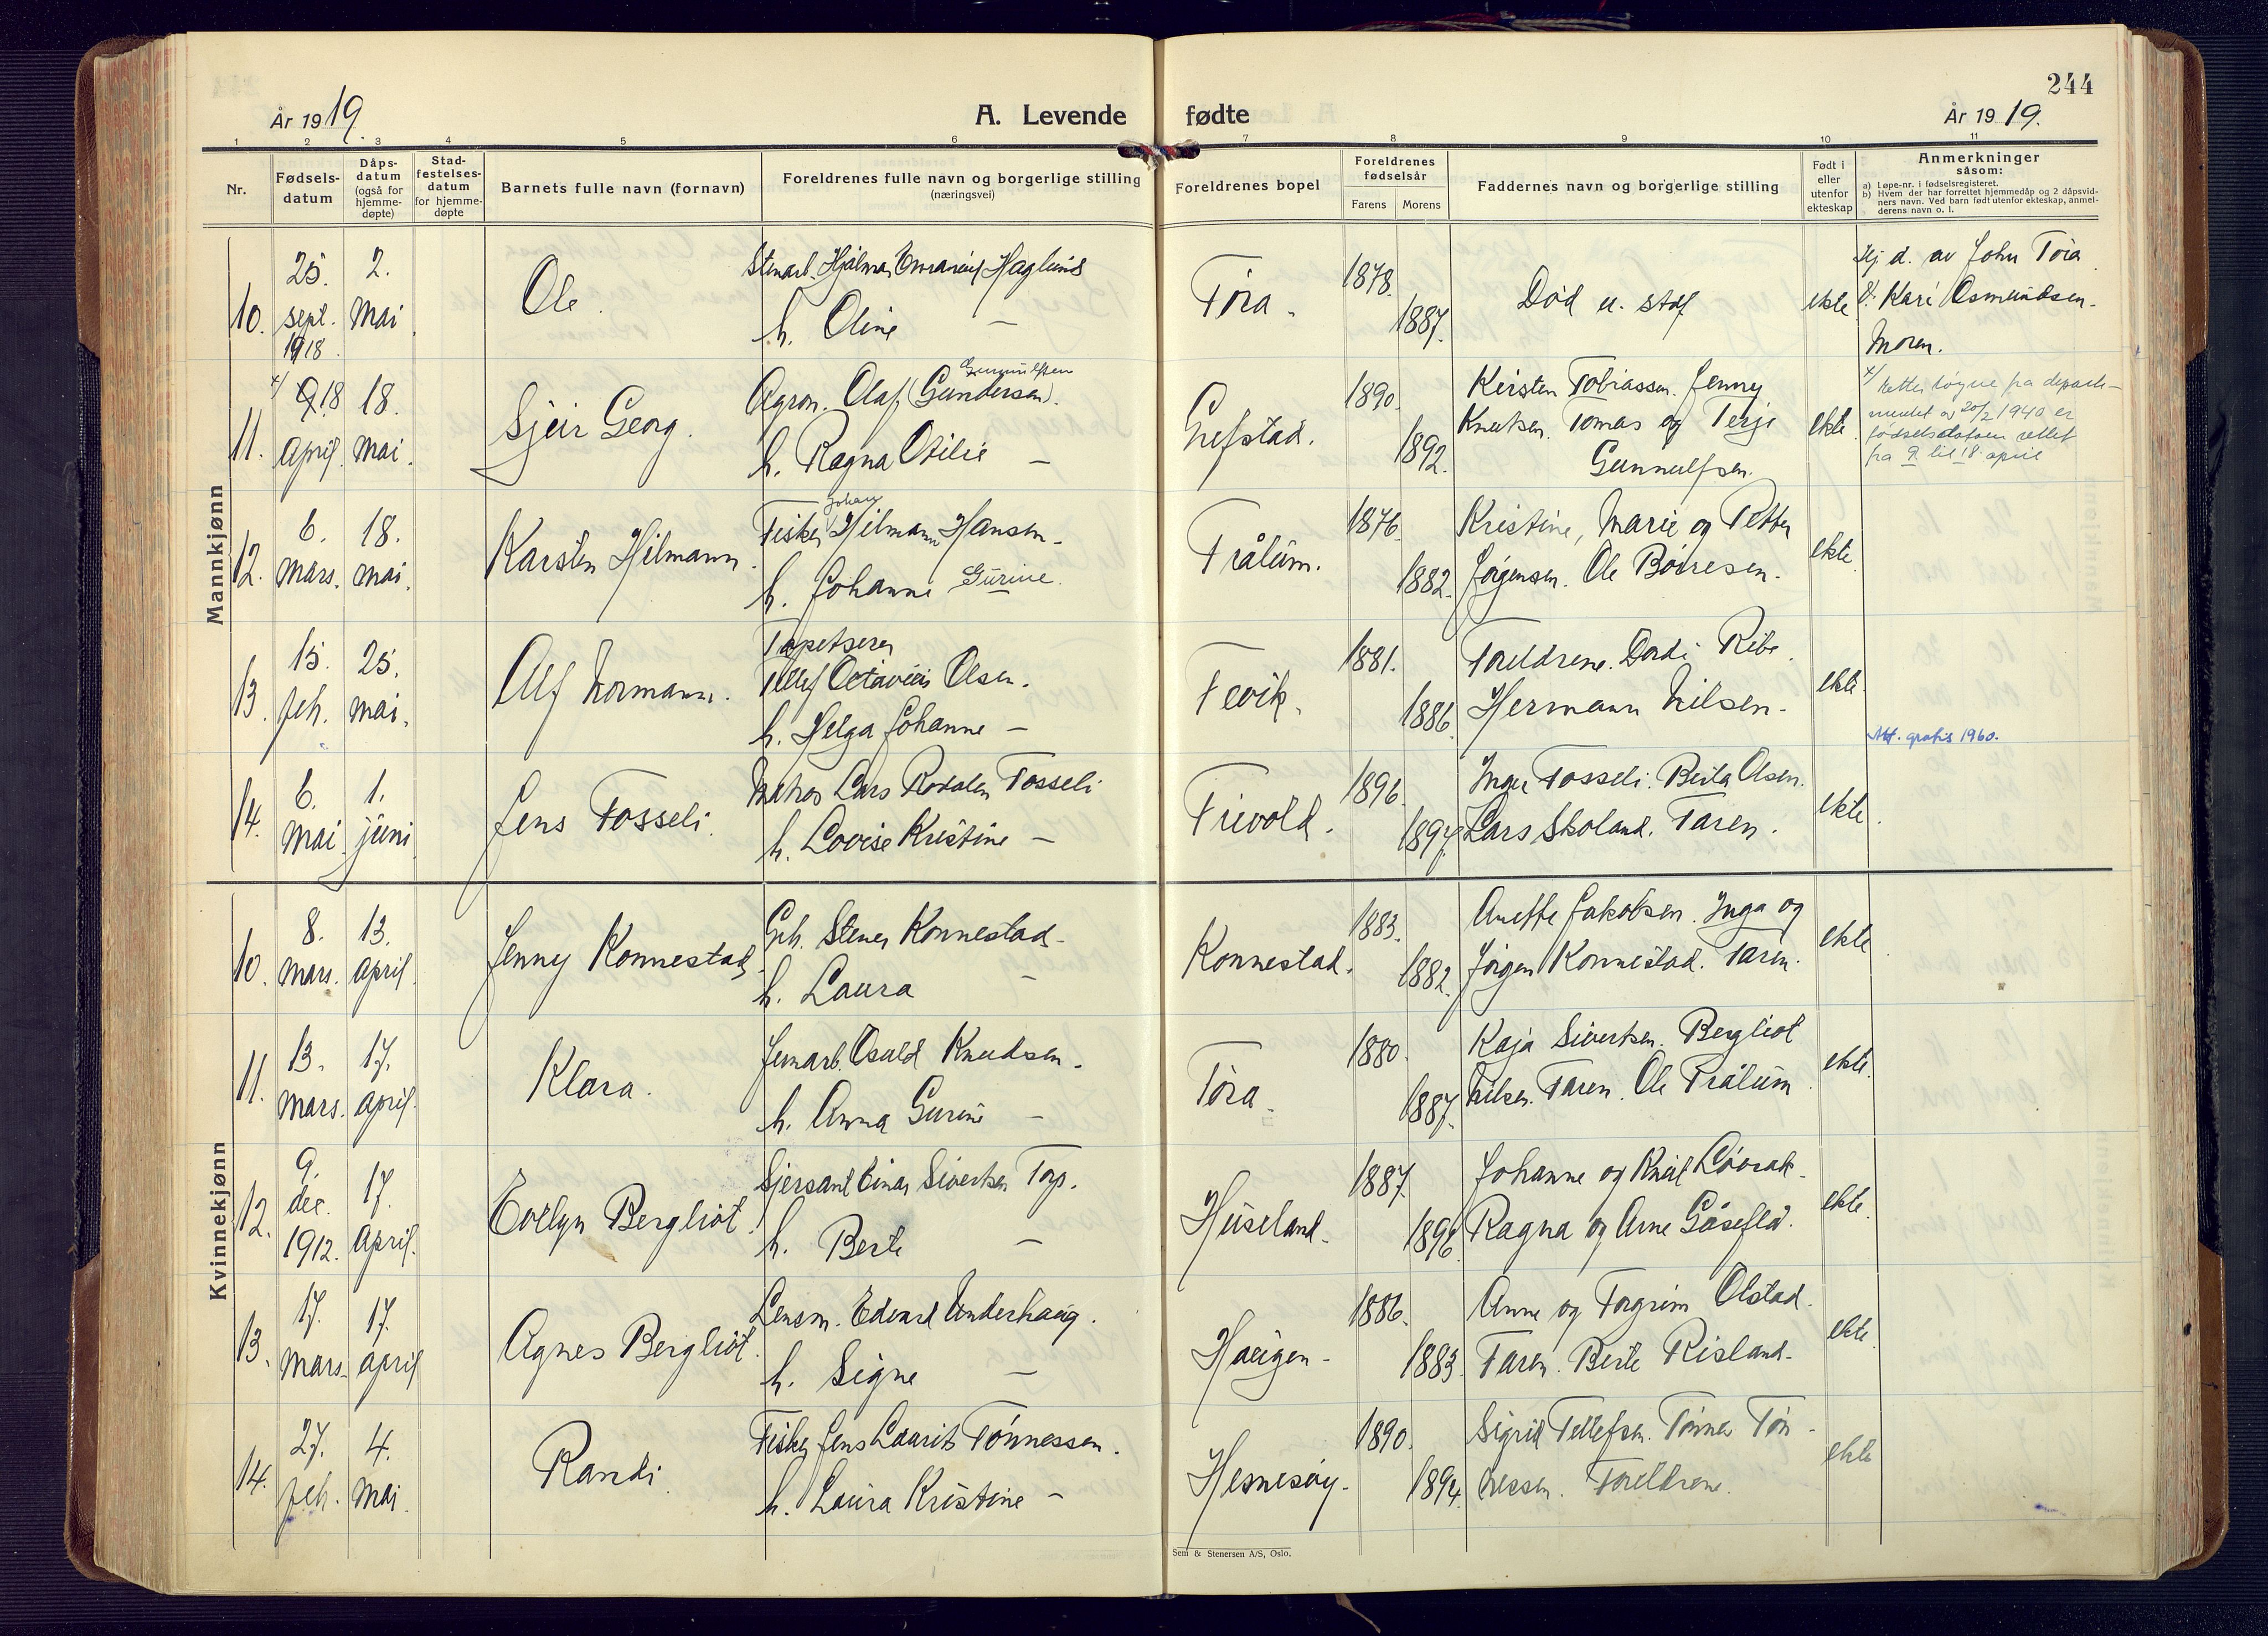 244
År 1919.
A. Levende fødte
År 1919.
1 2 3 4 5 6 7 8 9 10 11
Nr.
Fødsels-
datum
Dåps-
datum
(også for
hjemme-
døpte)
Stad-
festelses-
datum
for hjemme-
døpte
Barnets fulle navn (fornavn)
Foreldrenes fulle navn og borgerlige stilling
(næringsvei)
Foreldrenes bopel
Foreldrenes
fødselsår
Farens Morens
Faddernes navn og borgerlige stilling
Født i
eller
utenfor
ekteskap
Anmerkninger
såsom:
a) Løpe-nr. i fødselsregisteret.
b) Hvem der har forrettet hjemmedåp og 2 dåpsvid-
ners navn. Ved barn født utenfor ekteskap, anmel-
derens navn o. l.
Mannkjønn
10. 25. sept. 1918. 2. Mai
Ole.
Stenarb. Hjalmar Haglund
h. Oline —
Tøra.
1878.
1887.
Død u. stdf
ekte
Hj. d. av John Tøra
v: Kari Osmundsen.
Moren.
11. x/ 9 18 April. 18. Mai.
Sjeir Georg.
Gunnulfsen
Agron. Olaf (Gundersen).
h. Ragna Otilie —
Grefstad.
1890.
1892.
Kirsten Tobiassen. Jenny
Knutsen. Tomas og Terje
Gunnulfsen.
ekte.
x/ Ifølge fra departe-
mentet av 20/2 1940 er
fødselsdatoen rettet
fra 9 til 18 april
12. 6. Mars. 18. Mai.
Karsten Hilmann.
Johan
Fisker Hilmann Hansen.
h. Johanne Gurine.
Trålum.
1876.
1882.
Kristine, Marie og Petter
Jørgensen. Ole Børresen.
ekte.
13. 15. feb. 25. Mai.
Alf Normann.
Tapetserer
Tellef Octavius Olsen.
h. Helga Johanne —
Fevik.
1881.
1886.
Foreldrene. Dordi Ribe.
Hermann Nilsen.
ekte.
Att. gratis 1960.
14. 6. Mai 1. juni
Jens Fosseli.
Matros Lars Rodalen Fosseli
h. Lovise Kristine —
Frivold.
1896.
1897.
Inger Fosseli. Berta Olsen.
Lars Skoland. Faren.
ekte.
Kvinnekjønn
10. 8. Mars. 13. April.
Jenny Konnestad.
Gbr. Stener Konnestad.
h. Laura —
Konnestad.
1883.
1882.
Anette Jakobsen. Inga og
Jørgen Konnestad. Faren.
ekte.
11. 13. Mars. 17. April.
Klara.
Jernarb. Osuld Knudsen.
h. Anna Gurine —
Tøra.
1880.
1887.
Kaja Sivertsen. Bergliot
Nilsen. Faren. Ole Trålum.
ekte.
12. 9. dec. 1912. 17. April.
Evelyn Bergliot.
Sjersant Einar Sivertsen Torp.
h. Berte —
Huseland.
1887.
1896.
Johanne og Knut Løvrak.
Ragna og Arne Gåseflå.
ekte.
13. 17. Mars. 17. April
Agnes Bergliot.
Lensm. Edvard Underhaug.
h. Signe —
Haugen.
1886.
1883.
Anne og Torgrim Olstad.
Faren. Berte Risland.
ekte.
14. 27. feb. 4. Mai.
Randi.
Fisker Jens Laurits Tønnessen.
h. Laura Kristine —
Hesnesøy.
1890.
1894.
Sigrid Tellefsen. Tønnes Tøn-
nessen. Foreldrene.
ekte
Sem & Stenersen A/S, Oslo.